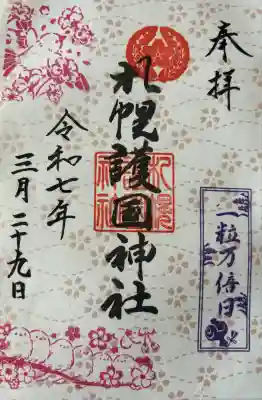 奉拝
札幌護國神社
令和七年
三月二十九日
一粒万倍日